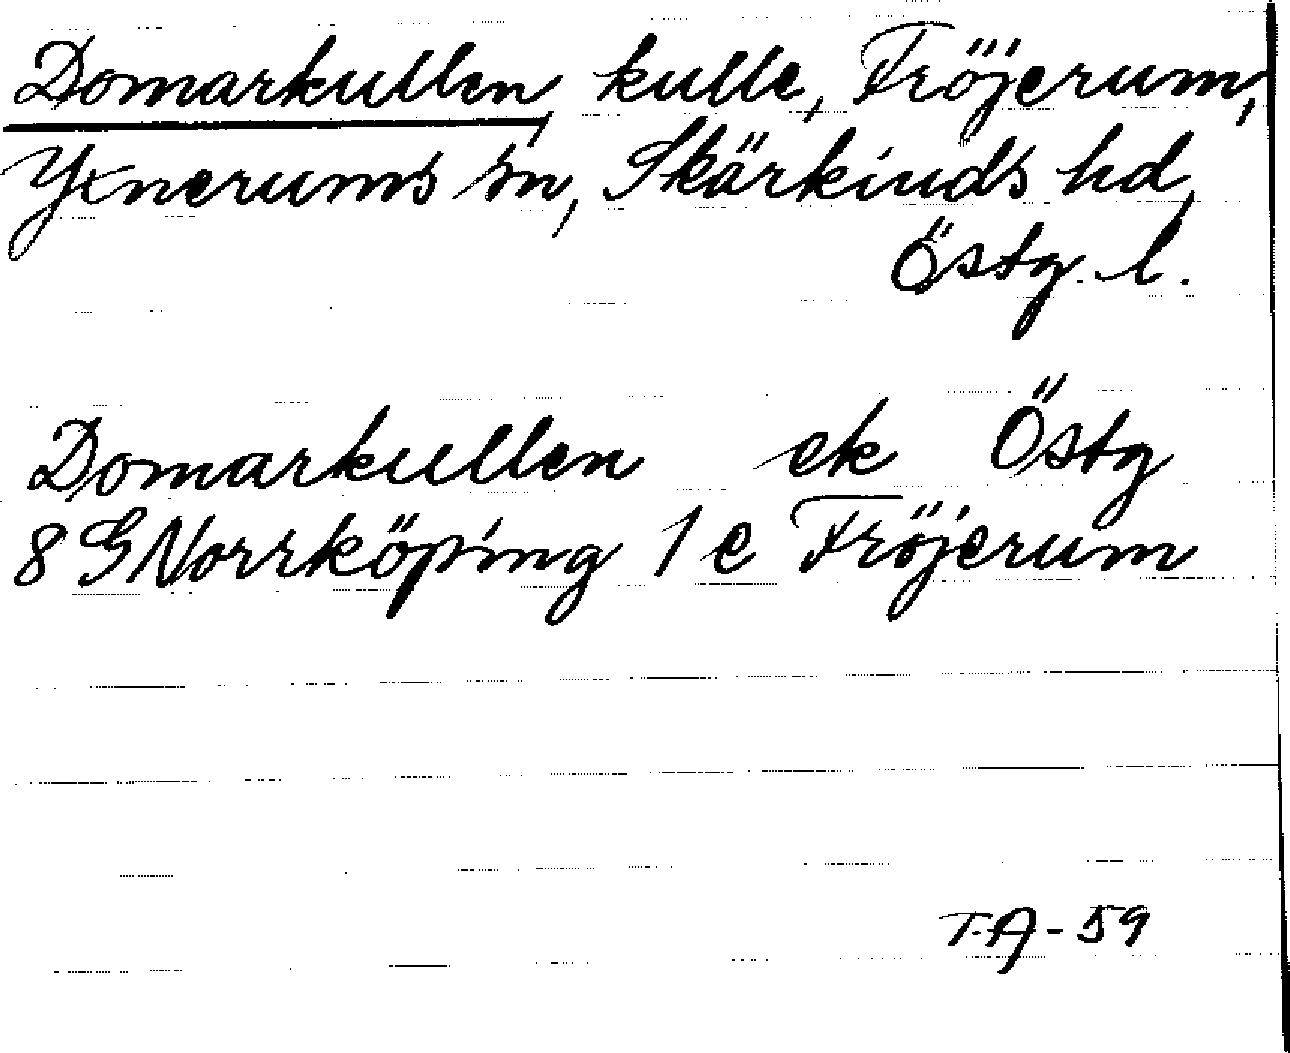 Domarkullen, kulle, Fröjerum,
Yxnerums sn, Skärkinds hd,
Östg. l.
Domarkullen ek Östg
8 G Norrköping 1 e Fröjerum
T.A-59